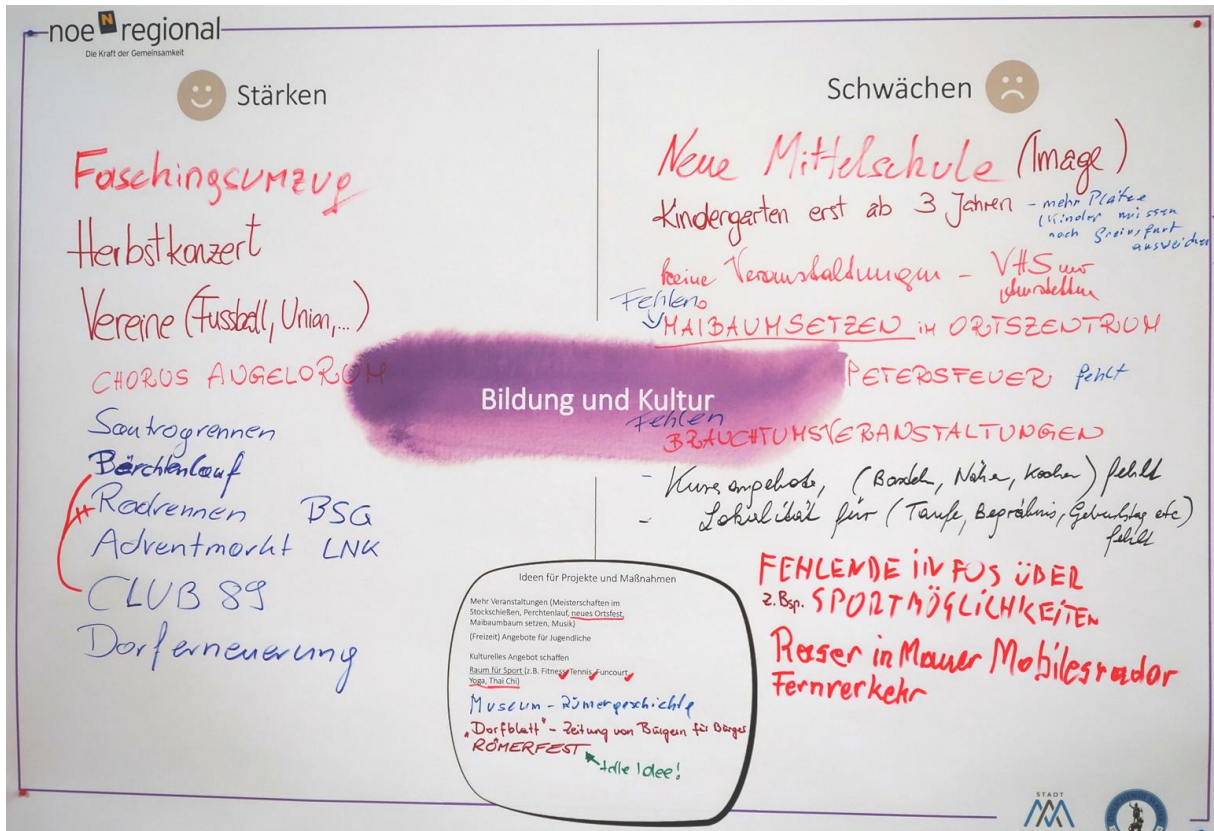 noe N regional
Die Kraft der Gemeinsamkeit
Stärken
Faschingsumzug
Herbstkonzert
Vereine (Fussball, Union,...)
CHORUS ANGELORUM
Sautrogrennen
Bärchtenlauf
Radrennen BSG
Adventmarkt LNK
CLUB 89
Dorferneuerung
Schwächen
Neue Mittelschule (Image)
Kindergarten erst ab 3 Jahren - mehr Plätze
(Kinder müssen
nach Greinsfurt
ausweichen
keine Veranstaltungen - VHS nur
Fehlen
MAIBAUMSETZEN im ORTSZENTRUM
PETERSFEUER fehlt
Bildung und Kultur
Fehlen
BRAUCHTUMSVERANSTALTUNGEN
- Kursangebote, (Basteln, Nähen, Kochen) fehlt
- Lokalität für (Taufe, Begräbnis, Geburtstag etc)
fehlt
FEHLENDE INFOS ÜBER
z.Bsp. SPORTMÖGLICHKEITEN
Raser in Mauer Mobilesradar
Fernverkehr
Ideen für Projekte und Maßnahmen
Mehr Veranstaltungen (Meisterschaften im
Stockschießen, Perchtenlauf, neues Ortsfest,
Maibaumbaum setzen, Musik)
(Freizeit) Angebote für Jugendliche
Kulturelles Angebot schaffen
Raum für Sport (z.B. Fitness, Tennis, Funcourt,
Yoga, Thai Chi)
Museum - Römergeschichte
"Dorfblatt" - Zeitung von Bürgern für Bürger
RÖMERFEST
tolle Idee!
STADT